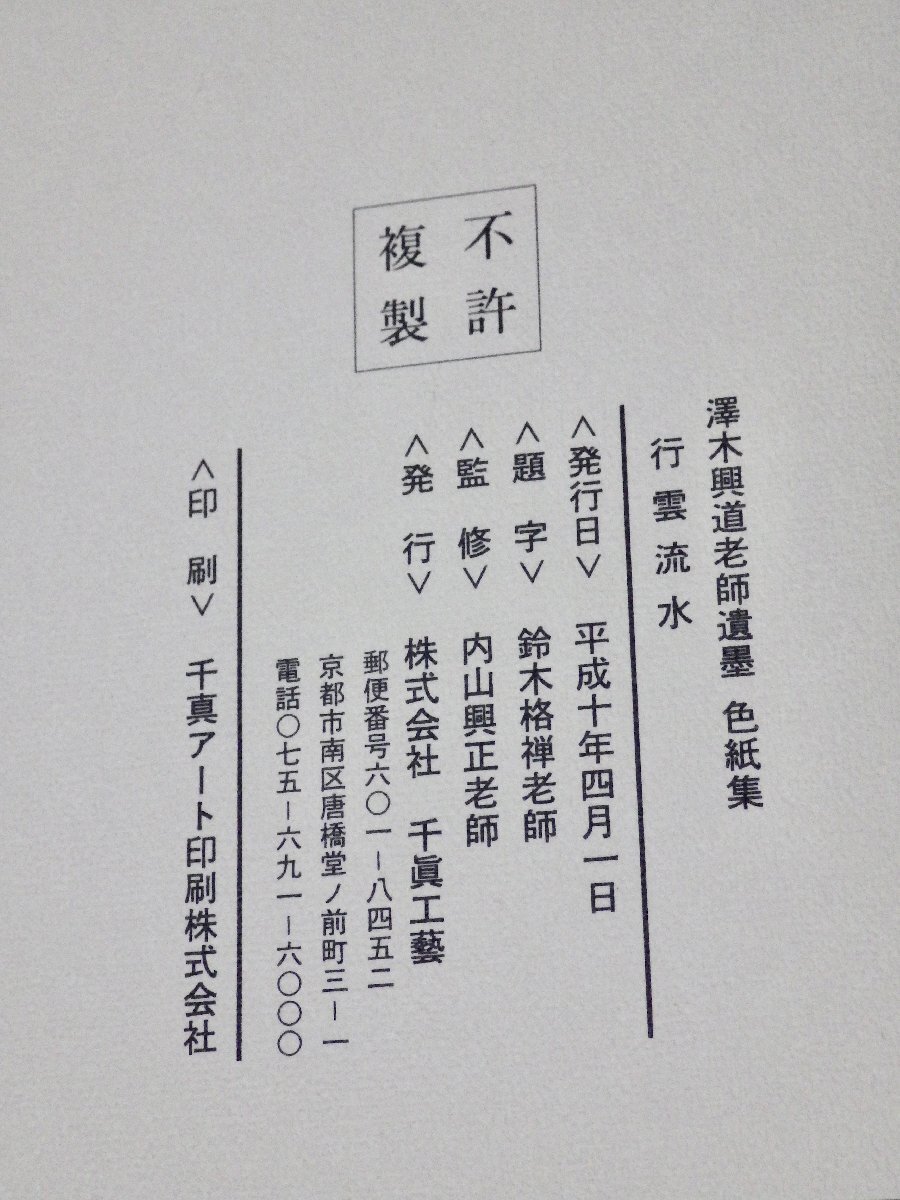 不許
複製
澤木興道老師遺墨 色紙集
行雲流水
〈発行日〉 平成十年四月一日
〈題字〉 鈴木格禅老師
〈監修〉 内山興正老師
〈発行〉 株式会社 千眞工藝
郵便番号六〇一－八四五二
京都市南区唐橋堂ノ前町三－一
電話〇七五－六九一－六〇〇〇
〈印刷〉 千真アート印刷株式会社